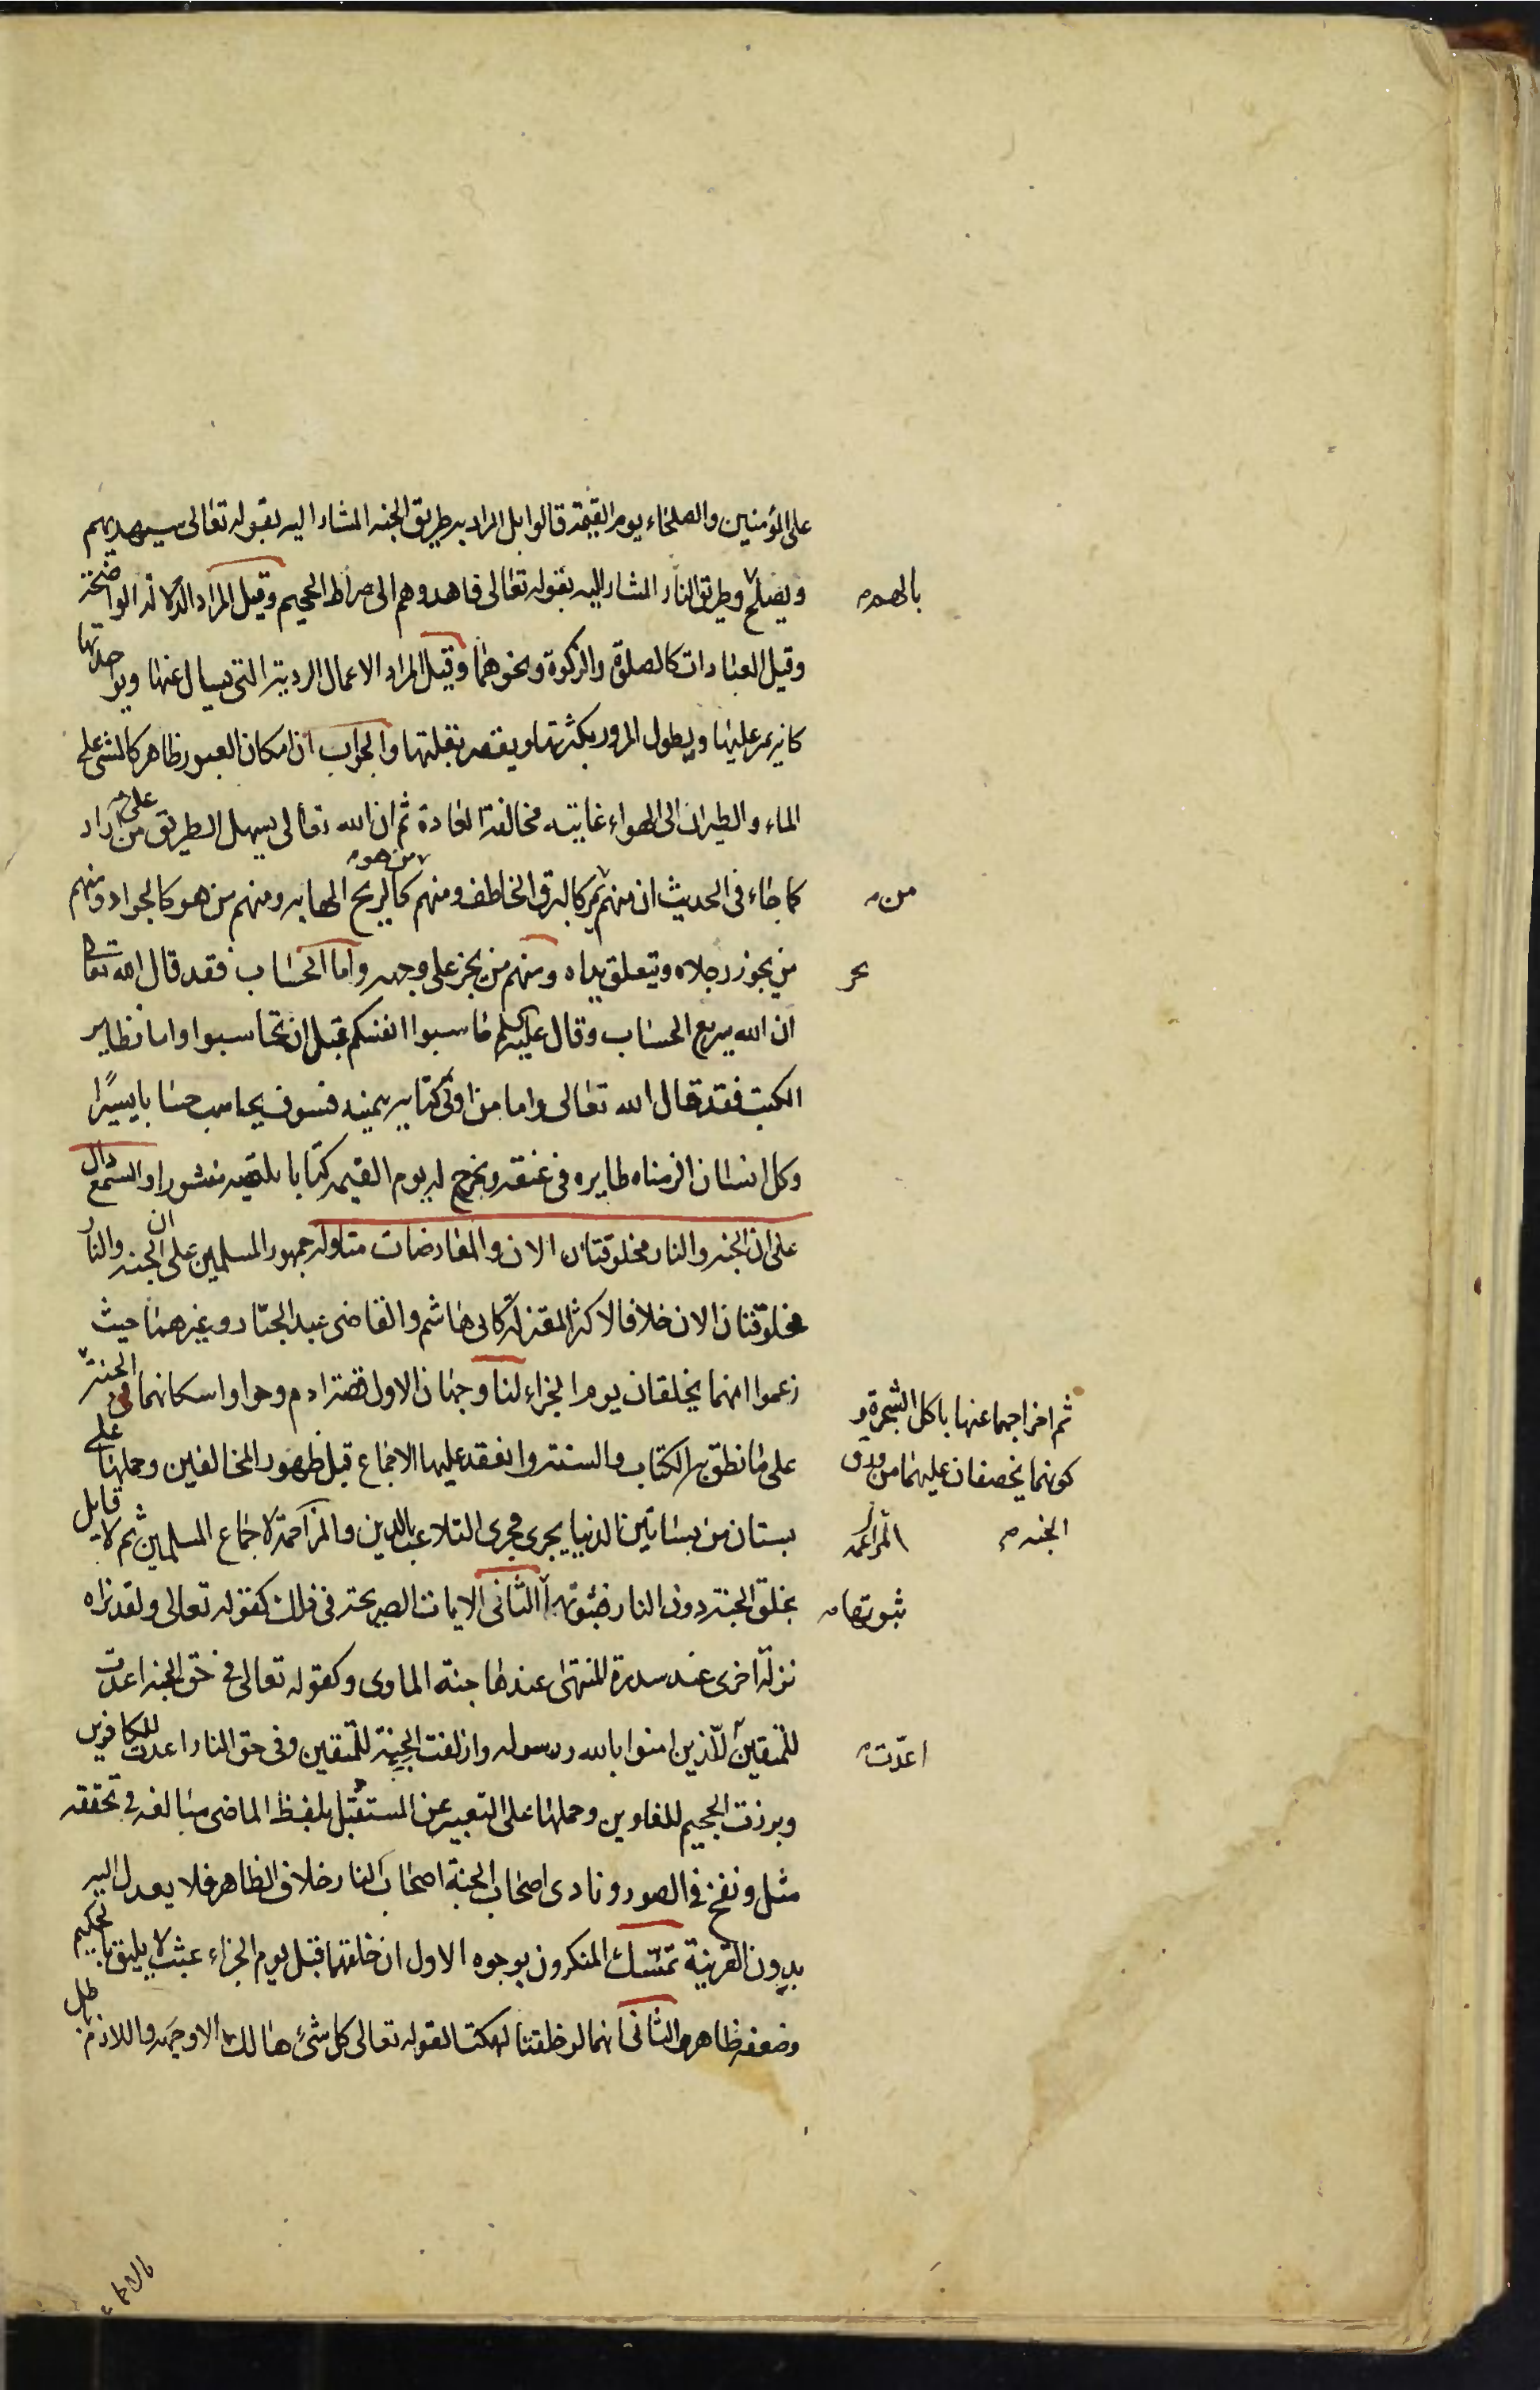 على المؤمنين والصلحاء يوم القيمة قالوا بل المراد به طريق الجنه المشار اليه بقوله تعالى سيهديهم
ويصلح وطريق النار المشار اليه بقوله تعالى فاهدوهم الى صراط الجحيم وقيل المراد الادلة الواضحة
بالهم
وقيل العبادات كالصلوة والزكوة ونحوهما وقيل المراد الاعمال الردية التى يسال عنها ويواخذ بها
كانه يمر عليها ويطول المرور بكثرتها ويقصر بقلتها والجواب ان امكان العبور ظاهر كالمشى على
الماء والطيران الى الهواء غايته مخالفة العادة ثم ان الله تعالى يسهل الطريق على من اراد
كما جاء فى الحديث ان منهم يمر كالبرق الخاطف ومنهم من هو كالريح الهابه ومنهم من هو كالجواد ومنهم
من
من يجوز رجلاه وتتعلق يداه ومنهم من يخر على وجهه واما الحساب فقد قال الله تعالى
ان الله سريع الحساب وقال عليه السلم حاسبوا انفسكم قبل ان تحاسبوا واما تطاير
الكتب فقد قال الله تعالى واما من اوتى كتابه بيمينه فسوف يحاسب حسابا يسيرًا
وكل انسان الزمناه طايره فى عنقه ونخرج له يوم القيمه كتابا يلقيه منشورا والسمع دال
على ان الجنه والنار مخلوقتان الان والمعارضات متاوله جمهور المسلمين على ان الجنه والنار
مخلوقتان الان خلافا لاكثر المعتزلة كابى هاشم والقاضى عبد الجبار وغيرهما حيث
زعموا انهما يخلقان يوم الجزاء لنا وجهان الاول قصة ادم وحوا واسكانهما فى الجنة
ثم اخراجهما عنها باكل الشجرة و
كونهما يخصفان عليهما من ورق
الجنه
على ما نطق به الكتاب والسنة وانعقد عليها الاجماع قبل ظهور المخالفين وحملها على
بستان من بساتين الدنيا يجرى مجرى التلاعب بالدين والمزاحمة لاجماع المسلمين ثم لا قايل
المراغمه
بخلق الجنة دون النار فثبوته الثانى الايات الصريحة فى ذلك كقوله تعالى ولقد راه
ثبوتها
نزلة اخرى عند سدرة المنتهى عندها جنة الماوى وكقوله تعالى فى حق الجنه اعدت
للمتقين للذين امنوا بالله ورسوله وازلفت الجنة للمتقين وفى حق النار اعدت للكافرين
اعدّت
وبرزت الجحيم للغاوين وحملها على التعبير عن المستقبل بلفظ الماضى مبالغه فى تحققه
مثل ونفخ فى الصور ونادى اصحاب الجنة اصحاب النار خلاف الظاهر فلا يعدل اليه
بدون القرينة تمسك المنكرون بوجوه الاول ان خلقهما قبل يوم الجزاء عبث لا يليق بالحكيم
وضعفه ظاهر والثانى انهما لو خلقتا لهلكتا لقوله تعالى كل شئ هالك الا وجهه واللازم باطل